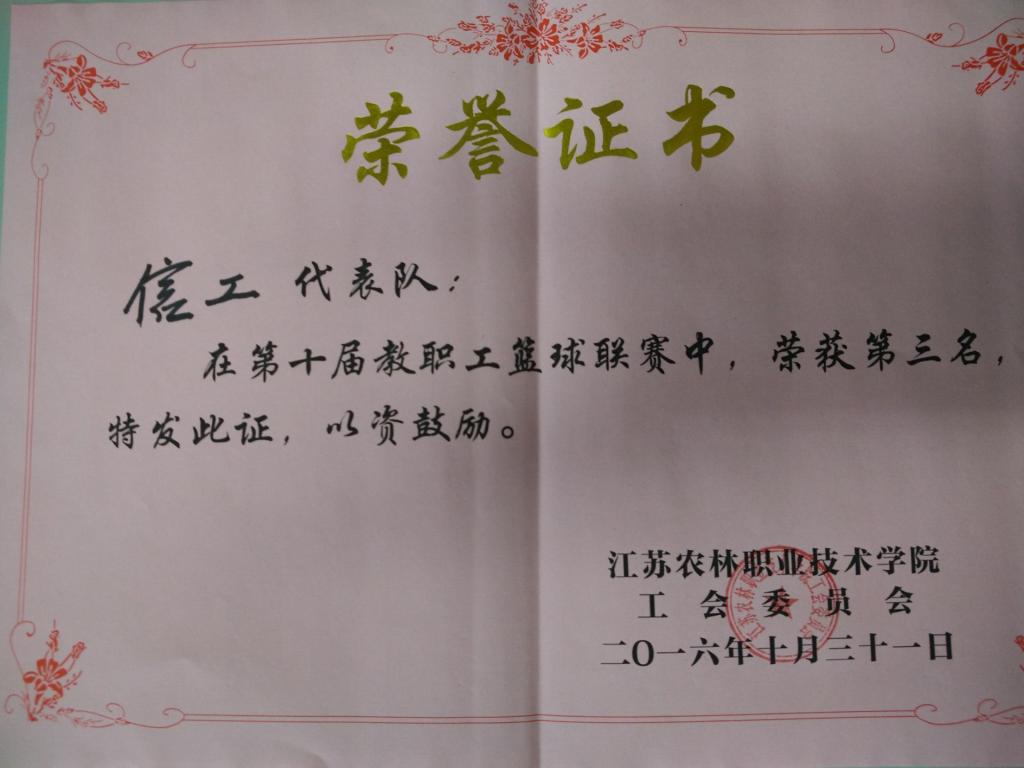 荣誉证书
信工 代表队：
在第十届教职工篮球联赛中，荣获第三名，
特发此证，以资鼓励。
江苏农林职业技术学院
工会委员会
二〇一六年十月三十一日